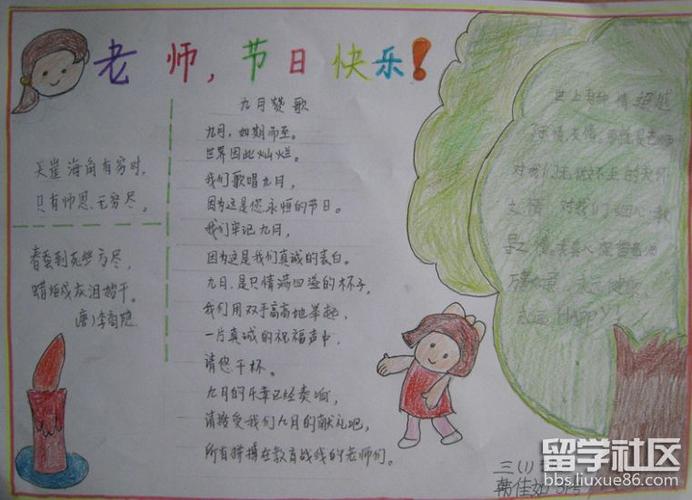 老师,节日快乐!
天崖海角有穷时,
只有师恩无穷尽。
春蚕到死丝方尽,
蜡炬成灰泪始干。
唐)李商隐
九月赞歌
九月,如期而至。
世界因此灿烂。
我们歌唱九月,
因为这是您永恒的节日。
我们牢记九月,
因为这是我们真诚的表白。
九月,是只情满四溢的杯子,
我们用双手高高地举起,
一片真诚的祝福声中,
请您干杯。
九月的乐章已经奏响,
请接受我们九月的献礼吧,
所有拼搏在教育战线的老师们。
世上有种情超越
亲情友情,
对我们无微不至的关怀
之情 对我们细心教
导之情
永远HAPPY!
三(1)
留学社区
bbs.liuxue86.com